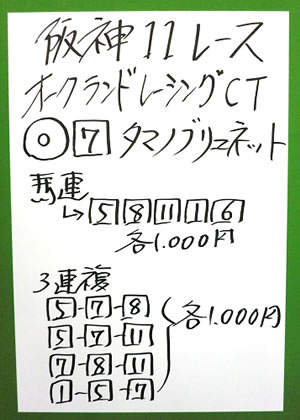 阪神11レース
オークランドレーシングCT
◎7タマノブリュネット
馬連
↳581116
各1.000円
3連複
5-7-8
5-7-11
7-8-11
1-5-7
各1.000円